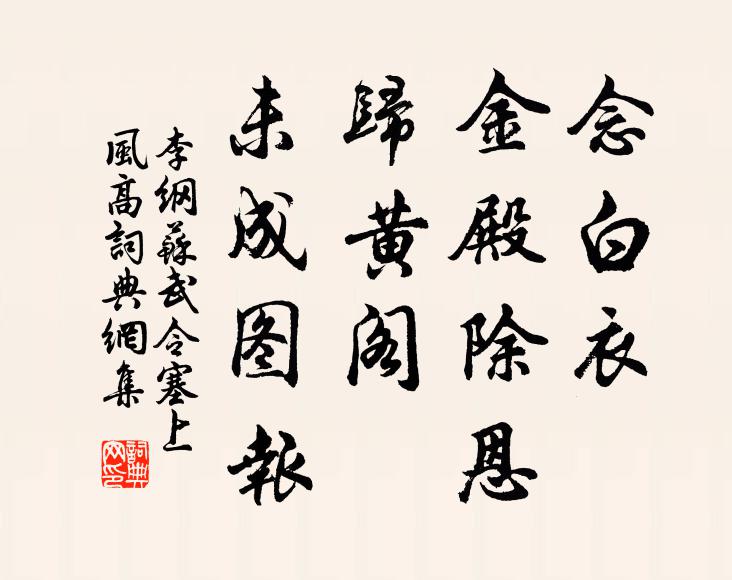 念白衣
金殿除恩
歸黄阁
未成图報
李綱蘇武令塞上
風高詞典網集
詞典
网印